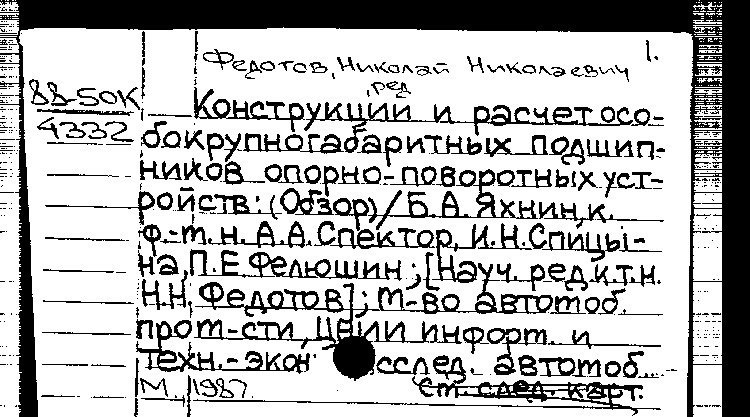 1.
Федотов, Николай Николаевич
, ред
88-50К Конструкции и расчет осо-
4332 бокрупногабаритных подшип-
ников опорно-поворотных уст-
ройств: (Обзор) / Б.А. Яхнин, к.
ф.-т.н. А.А. Спектор, И.Н. Спицы-
на, П.Е. Фелюшин; [Науч. ред. к.т.н.
Н.Н. Федотов]; М-во автомоб.
пром-сти, ЦНИИ информ. и
техн.-экон исслед. автомоб.
М., 1987. См. след. карт.